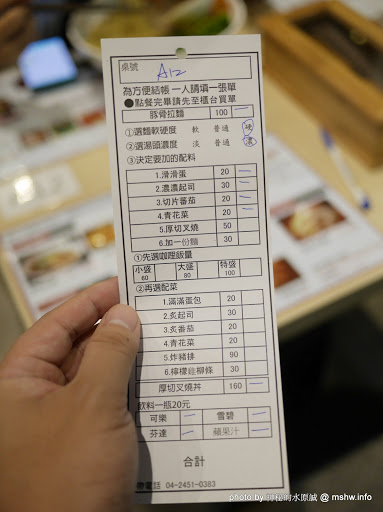 桌號 A12
為方便結帳 一人請填一張單
●點餐完畢請先至櫃台買單
豚骨拉麵 100
①選麵軟硬度 軟 普通 硬
②選湯頭濃度 淡 普通 濃
③決定要加的配料
1.滑滑蛋 20
2.濃濃起司 30
3.切片番茄 20
4.青花菜 20
5.厚切叉燒 50
6.加一份麵 30
①先選咖哩飯量
小盛 60 大盛 80 特盛 100
②再選配菜
1.滿滿蛋包 20
2.炙起司 30
3.炙番茄 20
4.青花菜 20
5.炸豬排 90
6.檸檬雞柳條 30
厚切叉燒丼 160
飲料一瓶20元
可樂 雪碧
芬達 蘋果汁
合計
電話 04-2451-0383
photo by 神秘的水原誠 @ mshw.info